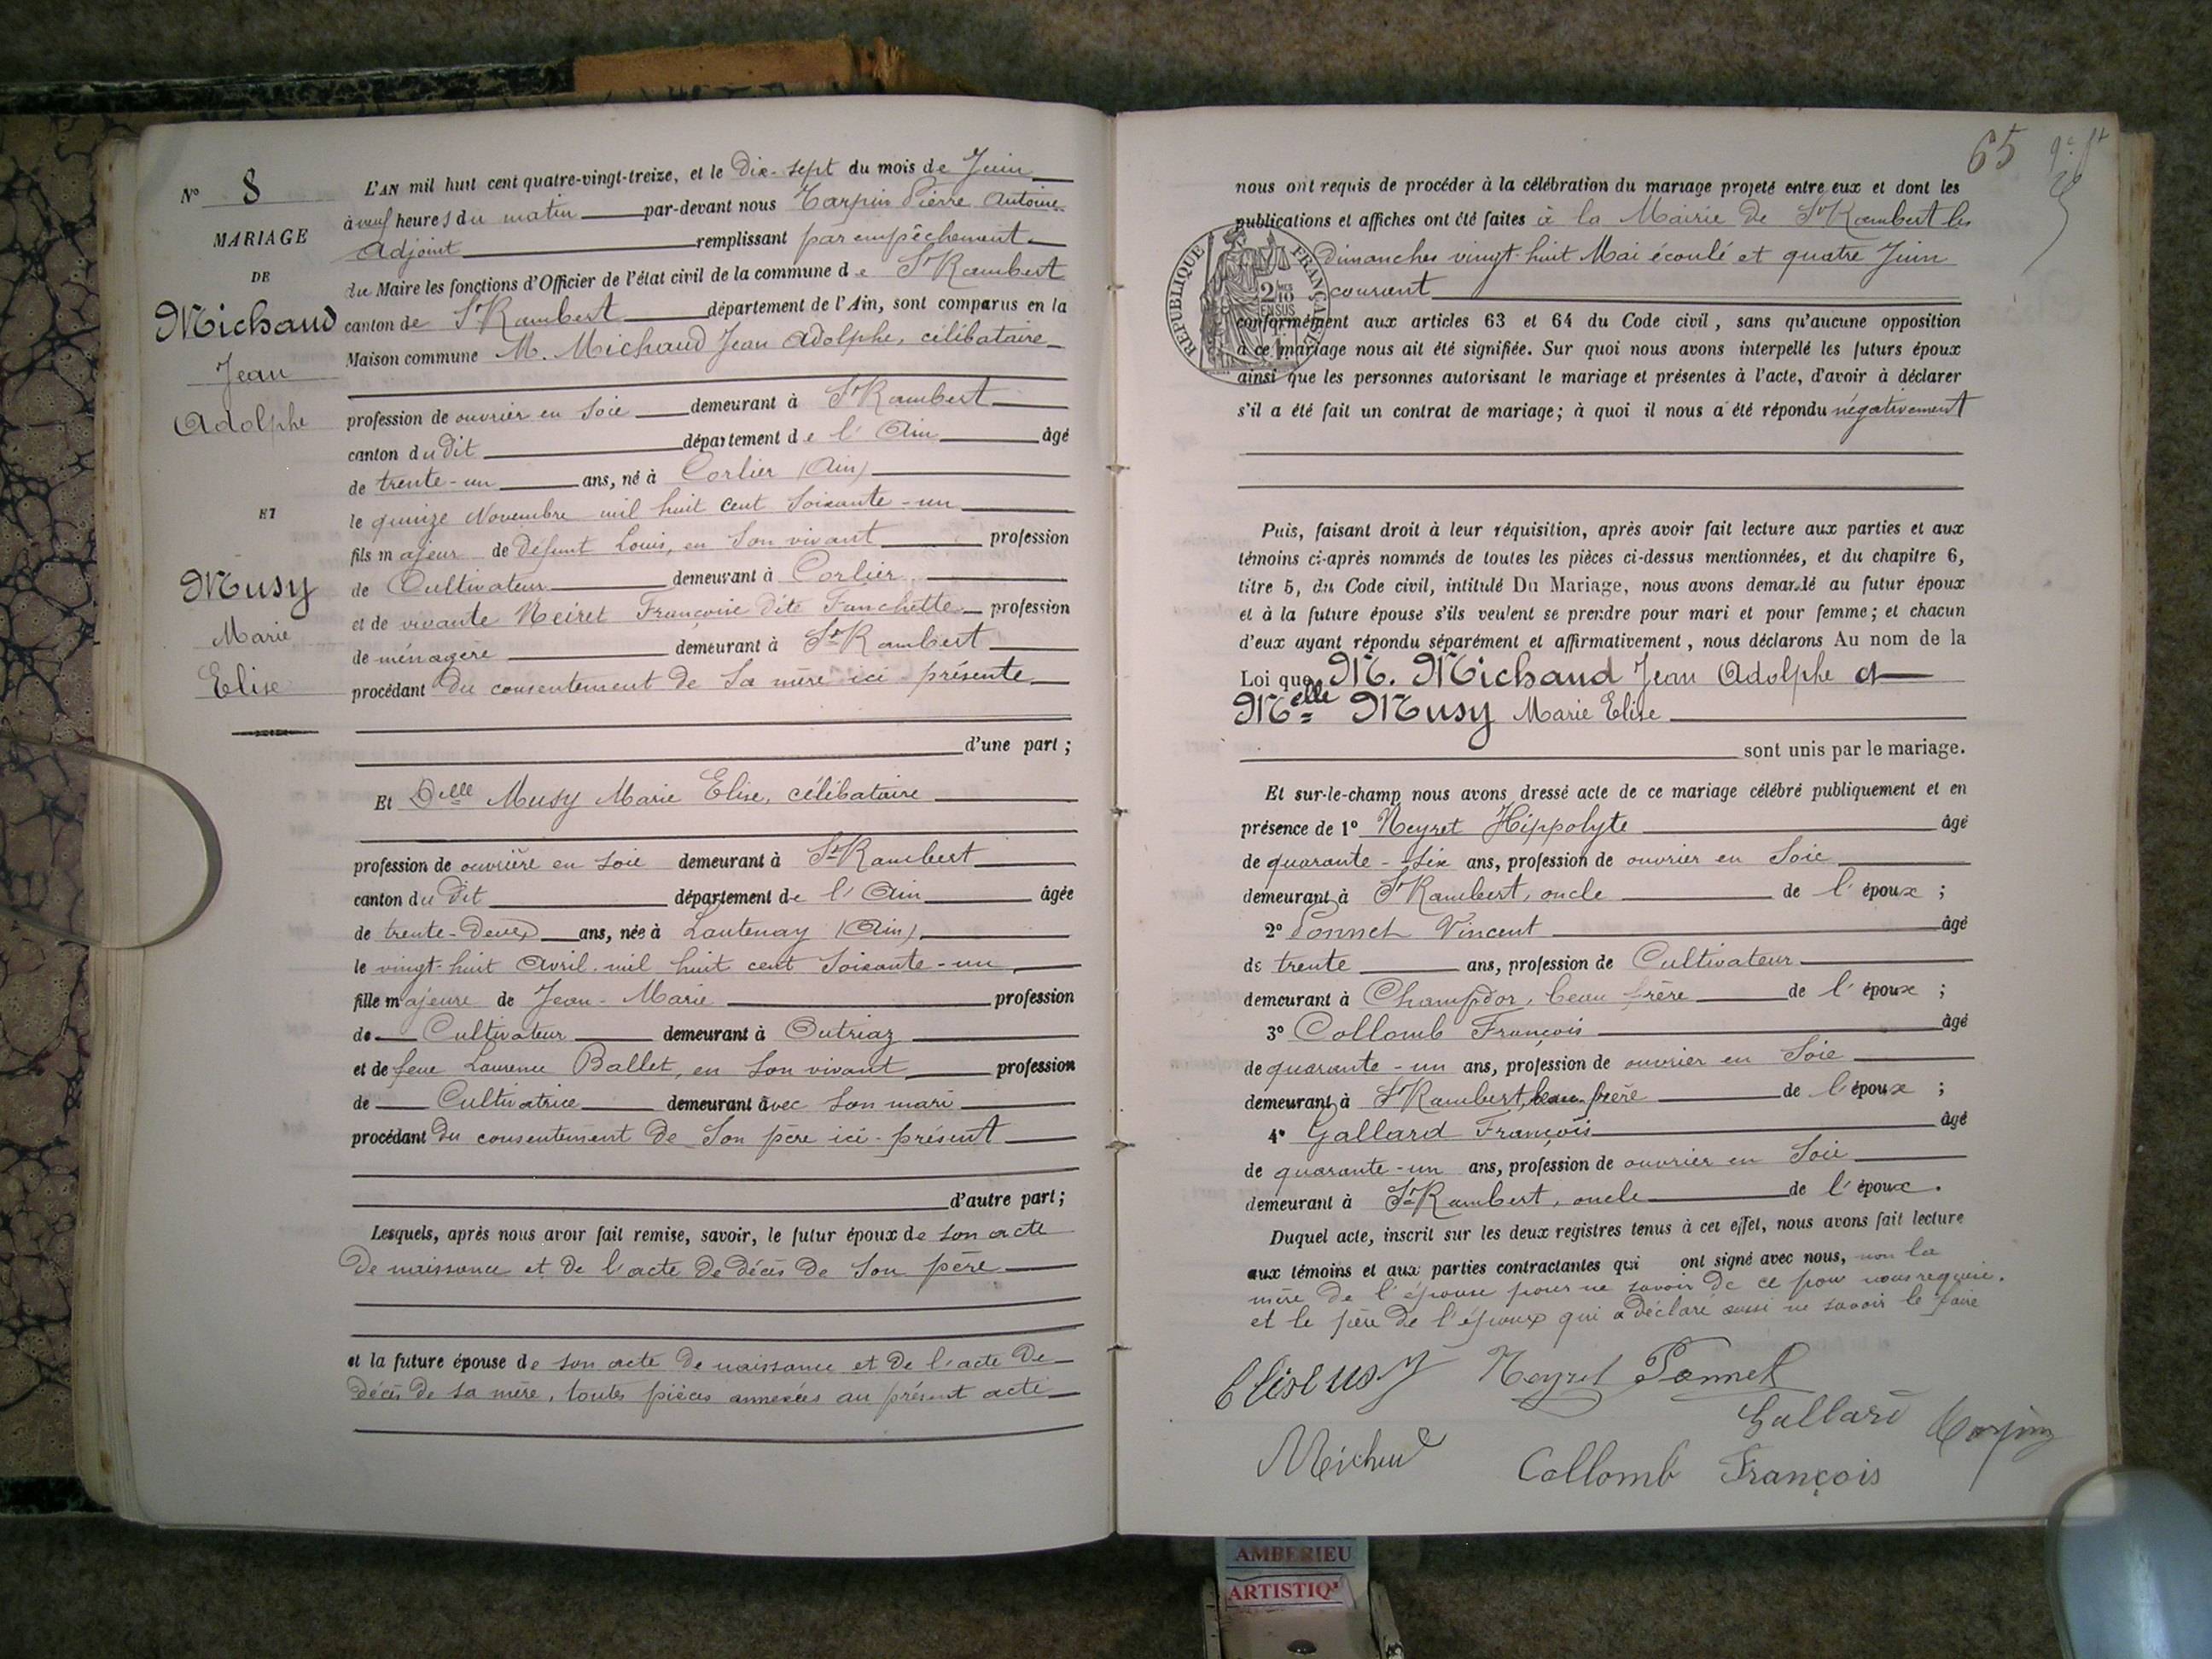 N° 8
MARIAGE
DE
Michaud
Jean
Adolphe
ET
Musy
Marie
Elise
L'AN mil huit cent quatre-vingt-treize, et le Dix-sept du mois de Juin
à neuf heures du matin par-devant nous Tarpin Pierre Antoine
Adjoint remplissant par empêchement
du Maire les fonctions d'Officier de l'état civil de la commune de St Rambert
canton de St Rambert département de l'Ain, sont comparus en la
Maison commune M. Michaud Jean Adolphe, célibataire
profession de ouvrier en soie demeurant à St Rambert
canton du dit département de l'Ain âgé
de trente-un ans, né à Corlier (Ain)
le quinze Novembre mil huit cent soixante-un
fils majeur de défunt Louis, en son vivant profession
de Cultivateur demeurant à Corlier
et de vivante Neiret Françoise dite Fanchette profession
de ménagère demeurant à St Rambert
procédant du consentement de sa mère ici présente
d'une part;
Et Delle Musy Marie Elise, célibataire
profession de ouvrière en soie demeurant à St Rambert
canton du dit département de l'Ain âgée
de trente-deux ans, née à Lantenay (Ain)
le vingt-huit Avril mil huit cent soixante-un
fille majeure de Jean-Marie profession
de Cultivateur demeurant à Outriaz
et de feue Laurence Ballet, en son vivant profession
de Cultivatrice demeurant avec son mari
procédant du consentement de son père ici-présent
d'autre part;
Lesquels, après nous avoir fait remise, savoir, le futur époux de son acte
de naissance et de l'acte de décès de son père
et la future épouse de son acte de naissance et de l'acte de
décès de sa mère, toutes pièces annexées au présent acte
65
nous ont requis de procéder à la célébration du mariage projeté entre eux et dont les
publications et affiches ont été faites à la Mairie de St Rambert les
dimanches vingt-huit Mai écoulé et quatre Juin
courant
RÉPUBLIQUE FRANÇAISE
2/10 EN SUS
conformément aux articles 63 et 64 du Code civil, sans qu'aucune opposition
à ce mariage nous ait été signifiée. Sur quoi nous avons interpellé les futurs époux
ainsi que les personnes autorisant le mariage et présentes à l'acte, d'avoir à déclarer
s'il a été fait un contrat de mariage; à quoi il nous a été répondu négativement
Puis, faisant droit à leur réquisition, après avoir fait lecture aux parties et aux
témoins ci-après nommés de toutes les pièces ci-dessus mentionnées, et du chapitre 6,
titre 5, du Code civil, intitulé Du Mariage, nous avons demandé au futur époux
et à la future épouse s'ils veulent se prendre pour mari et pour femme; et chacun
d'eux ayant répondu séparément et affirmativement, nous déclarons Au nom de la
Loi que M. Michaud Jean Adolphe et
Melle Musy Marie Elise
sont unis par le mariage.
Et sur-le-champ nous avons dressé acte de ce mariage célébré publiquement et en
présence de 1° Neyret Hippolyte âgé
de quarante-six ans, profession de ouvrier en soie
demeurant à St Rambert, oncle de l'époux;
2° Ponnet Vincent âgé
de trente ans, profession de Cultivateur
demeurant à Champdor, beau frère de l'époux;
3° Collomb François âgé
de quarante-un ans, profession de ouvrier en soie
demeurant à St Rambert, beau-frère de l'époux;
4° Gallard François âgé
de quarante-un ans, profession de ouvrier en soie
demeurant à St Rambert, oncle de l'époux.
Duquel acte, inscrit sur les deux registres tenus à cet effet, nous avons fait lecture
aux témoins et aux parties contractantes qui ont signé avec nous, non la
mère de l'épouse pour ne savoir de ce par nous requise.
et le père de l'époux qui a déclaré aussi ne savoir le faire
Neyret Ponnet
Gallard
Collomb François
AMBERIEU
ARTISTIQ